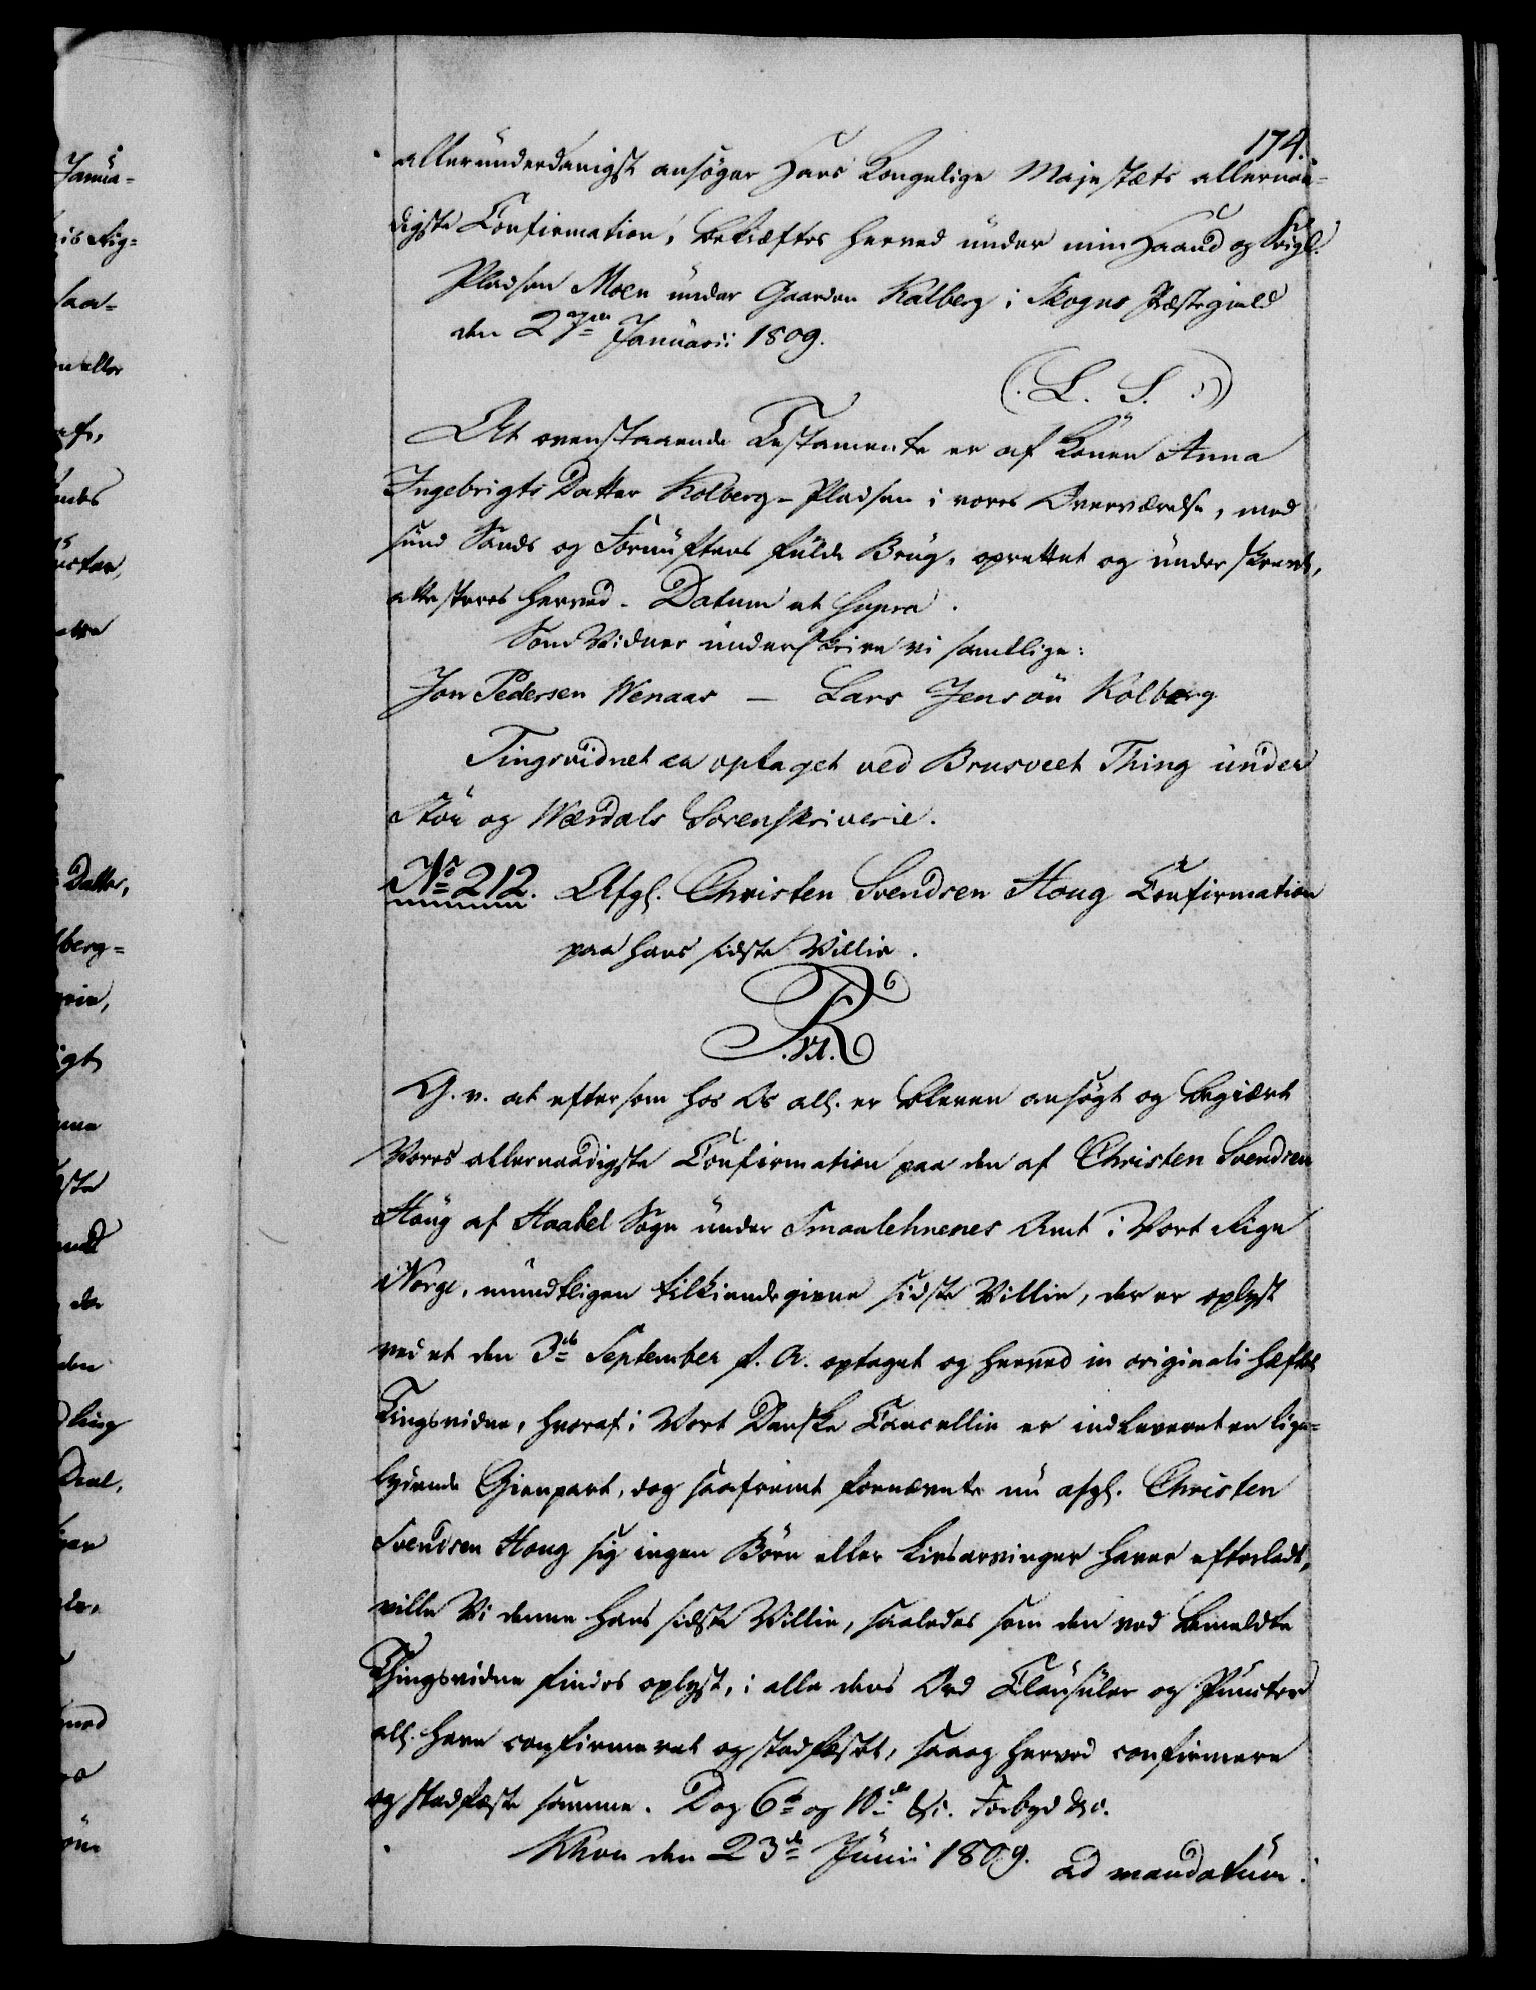 174.
allerunderdanigst ansøger Hans Kongelige Majestæts allernaa-
digste Confirmation, bekræftes herved under min Haand og Seigl.
Pladsen Moen under Gaarden Kalberg i Skogns Præstegield
den 27de Januarii 1809.
(. L. S. :)
At ovenstaaende Testamente er af Konen Anna
Ingebrigts Datter Kolberg-Pladsen i vores Overværelse, med
sund Sands og Fornuftens fulde Brug, oprettet og underskrevet,
attesteres herved. Datum ut supra.
Som Vidner underskrive vi samtlige:
Jon Pedersen Wenaas — Lars Jensøn Kolberg
Tingsvidnet er optaget ved Brusveet Thing under
Stør og Wærdals Sorenskriverie.
No 212. Afgl. Christen Svendsen Houg Confirmation
paa hans sidste Villie.
FR.VI.
G. v. at eftersom hos Os all. er bleven ansøgt og begiært
Vores allernaadigste Confirmation paa den af Christen Svendsen
Houg af Haabel Sogn under Smaalehnenes Amt i Vort Rige
Norge, mundtligen tilkiendegivne sidste Villie, der er oplyst
ved et den 3de September f. A. optaget og herved in originali hæftet
Tingsvidne, hvoraf i Vort Danske Cancellie er indleveret en lige-
lydende Gienpart, dog saafremt fornævnte nu afgl. Christen
Svendsen Houg sig ingen Børn eller Livsarvinger haver efterladt,
ville Vi denne hans sidste Villie, saaledes som den ved bemeldte
Thingsvidne findes oplyst, i alle dens Ord Clausuler og Puncter
all. have confirmeret og stadfæstet, saa og herved confirmere
og stadfæste samme. Dog 6te og 10de &c. Forbyd &c.
Khvn den 23de Junii 1809. ad mandatum.